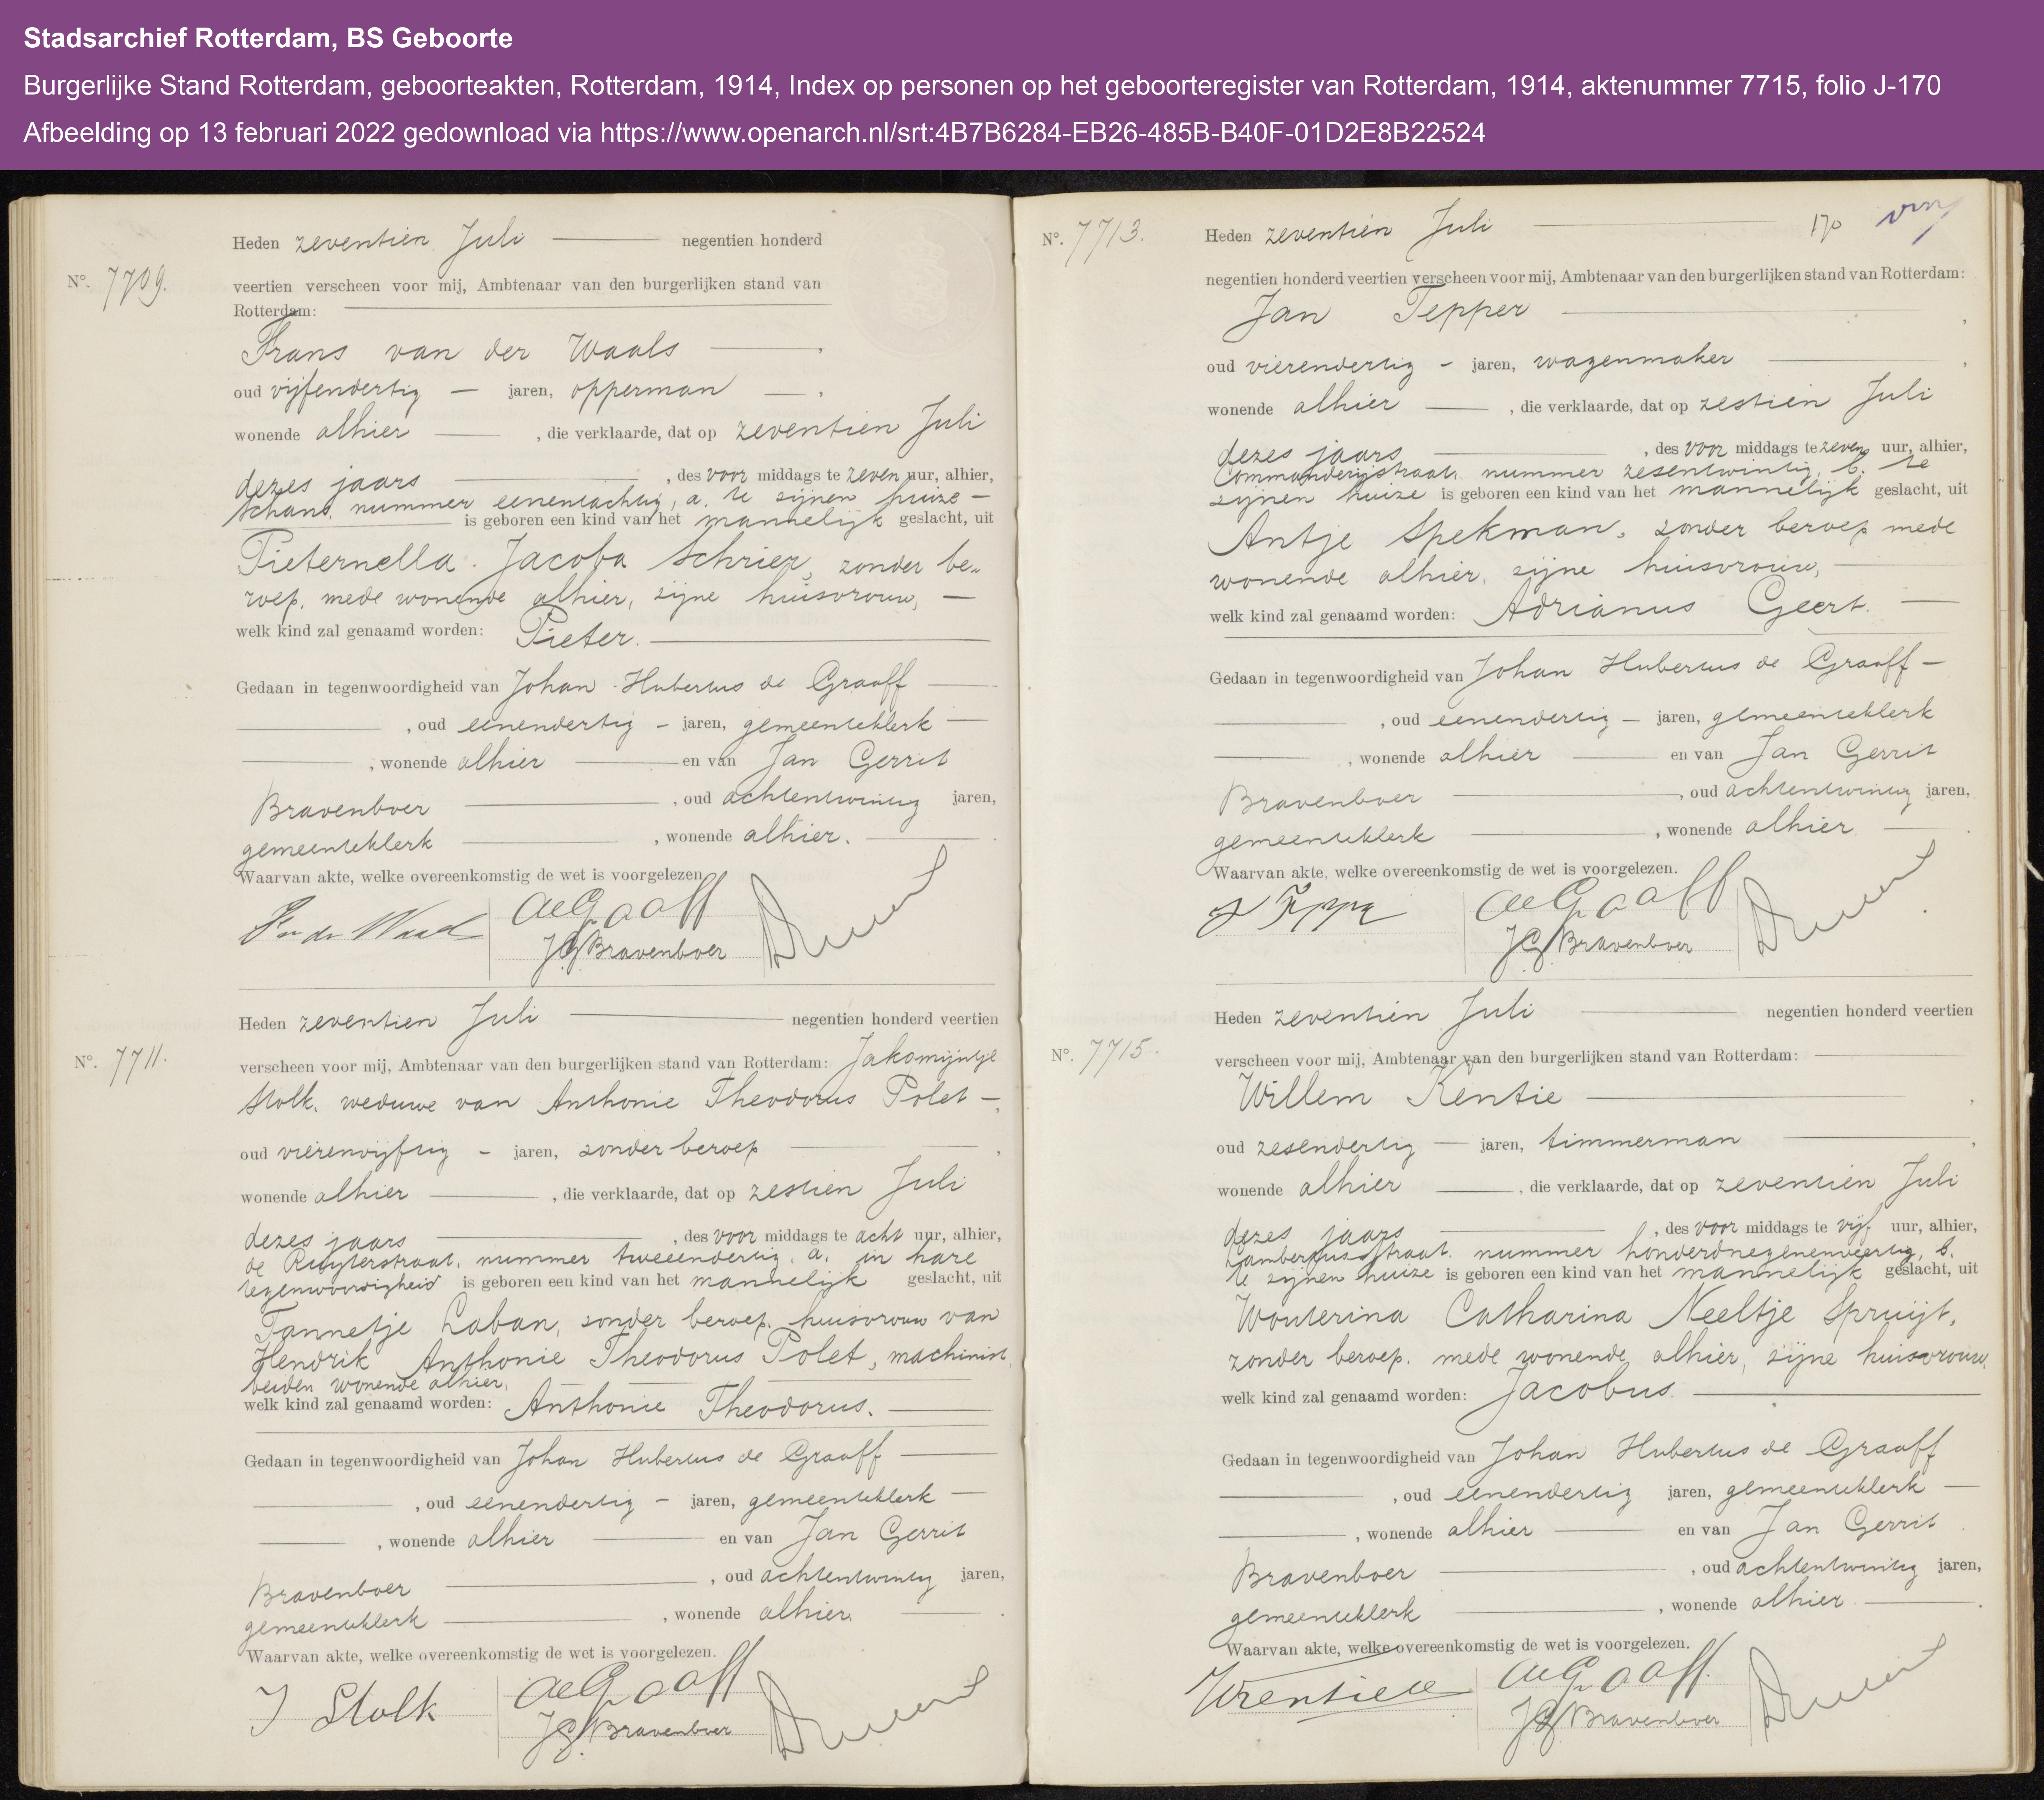 Stadsarchief Rotterdam, BS Geboorte
Burgerlijke Stand Rotterdam, geboorteakten, Rotterdam, 1914, Index op personen op het geboorteregister van Rotterdam, 1914, aktenummer 7715, folio J-170
Afbeelding op 13 februari 2022 gedownload via https://www.openarch.nl/srt:4B7B6284-EB26-485B-B40F-01D2E8B22524
Nº. 7709.
Heden zeventien Juli negentien honderd
veertien verscheen voor mij, Ambtenaar van den burgerlijken stand van
Rotterdam:
Frans van der Waals,
oud vijfendertig — jaren, opperman —,
wonende alhier, die verklaarde, dat op zeventien Juli
dezes jaars, des voormiddags te zeven uur, alhier,
Schans, nummer eenentachtig, a. te zijnen huize —
is geboren een kind van het mannelijk geslacht, uit
Pieternella Jacoba Schrier, zonder be-
roep, mede wonende alhier, zijne huisvrouw, —
welk kind zal genaamd worden: Pieter.
Gedaan in tegenwoordigheid van Johan Hubertus de Graaff
, oud eenendertig — jaren, gemeenteklerk —
, wonende alhier en van Jan Gerrit
Bravenboer, oud achtentwintig jaren,
gemeenteklerk, wonende alhier.
Waarvan akte, welke overeenkomstig de wet is voorgelezen.
F v der Waals
de Graaff
JG Bravenboer
Nº. 7711.
Heden zeventien Juli negentien honderd veertien
verscheen voor mij, Ambtenaar van den burgerlijken stand van Rotterdam: Jakomijntje
Stolk, weduwe van Anthonie Theodorus Polet —,
oud vierenvijftig — jaren, zonder beroep,
wonende alhier, die verklaarde, dat op zestien Juli
dezes jaars, des voormiddags te acht uur, alhier,
de Ruyterstraat, nummer tweeendertig, a. in hare
tegenwoordigheid is geboren een kind van het mannelijk geslacht, uit
Tannetje Laban, zonder beroep, huisvrouw van
Hendrik Anthonie Theodorus Polet, machinist,
beiden wonende alhier,
welk kind zal genaamd worden: Anthonie Theodorus.
Gedaan in tegenwoordigheid van Johan Hubertus de Graaff
, oud eenendertig — jaren, gemeenteklerk —
, wonende alhier en van Jan Gerrit
Bravenboer, oud achtentwintig jaren,
gemeenteklerk, wonende alhier.
Waarvan akte, welke overeenkomstig de wet is voorgelezen.
J Stolk
de Graaff
JG Bravenboer
170
Nº. 7713.
Heden zeventien Juli
negentien honderd veertien verscheen voor mij, Ambtenaar van den burgerlijken stand van Rotterdam:
Jan Tepper,
oud vierendertig — jaren, wagenmaker,
wonende alhier, die verklaarde, dat op zestien Juli
dezes jaars, des voormiddags te zeven uur, alhier,
Commanderijstraat, nummer zesentwintig, b. te
zijnen huize is geboren een kind van het mannelijk geslacht, uit
Antje Spekman, zonder beroep mede
wonende alhier, zijne huisvrouw,
welk kind zal genaamd worden: Adrianus Geert.
Gedaan in tegenwoordigheid van Johan Hubertus de Graaff —
, oud eenendertig — jaren, gemeenteklerk
, wonende alhier en van Jan Gerrit
Bravenboer, oud achtentwintig jaren,
gemeenteklerk, wonende alhier.
Waarvan akte, welke overeenkomstig de wet is voorgelezen.
J Tepper
de Graaff
JG Bravenboer
Nº. 7715.
Heden zeventien Juli negentien honderd veertien
verscheen voor mij, Ambtenaar van den burgerlijken stand van Rotterdam:
Willem Kentie,
oud zesendertig — jaren, timmerman,
wonende alhier, die verklaarde, dat op zeventien Juli
dezes jaars, des voormiddags te vijf uur, alhier,
Lambertusstraat, nummer honderdnegenenveertig, b.
te zijnen huize is geboren een kind van het mannelijk geslacht, uit
Wouterina Catharina Neeltje Spruijt,
zonder beroep, mede wonende alhier, zijne huisvrouw,
welk kind zal genaamd worden: Jacobus.
Gedaan in tegenwoordigheid van Johan Hubertus de Graaff
, oud eenendertig jaren, gemeenteklerk —
, wonende alhier en van Jan Gerrit
Bravenboer, oud achtentwintig jaren,
gemeenteklerk, wonende alhier.
Waarvan akte, welke overeenkomstig de wet is voorgelezen.
de Graaff
JG Bravenboer